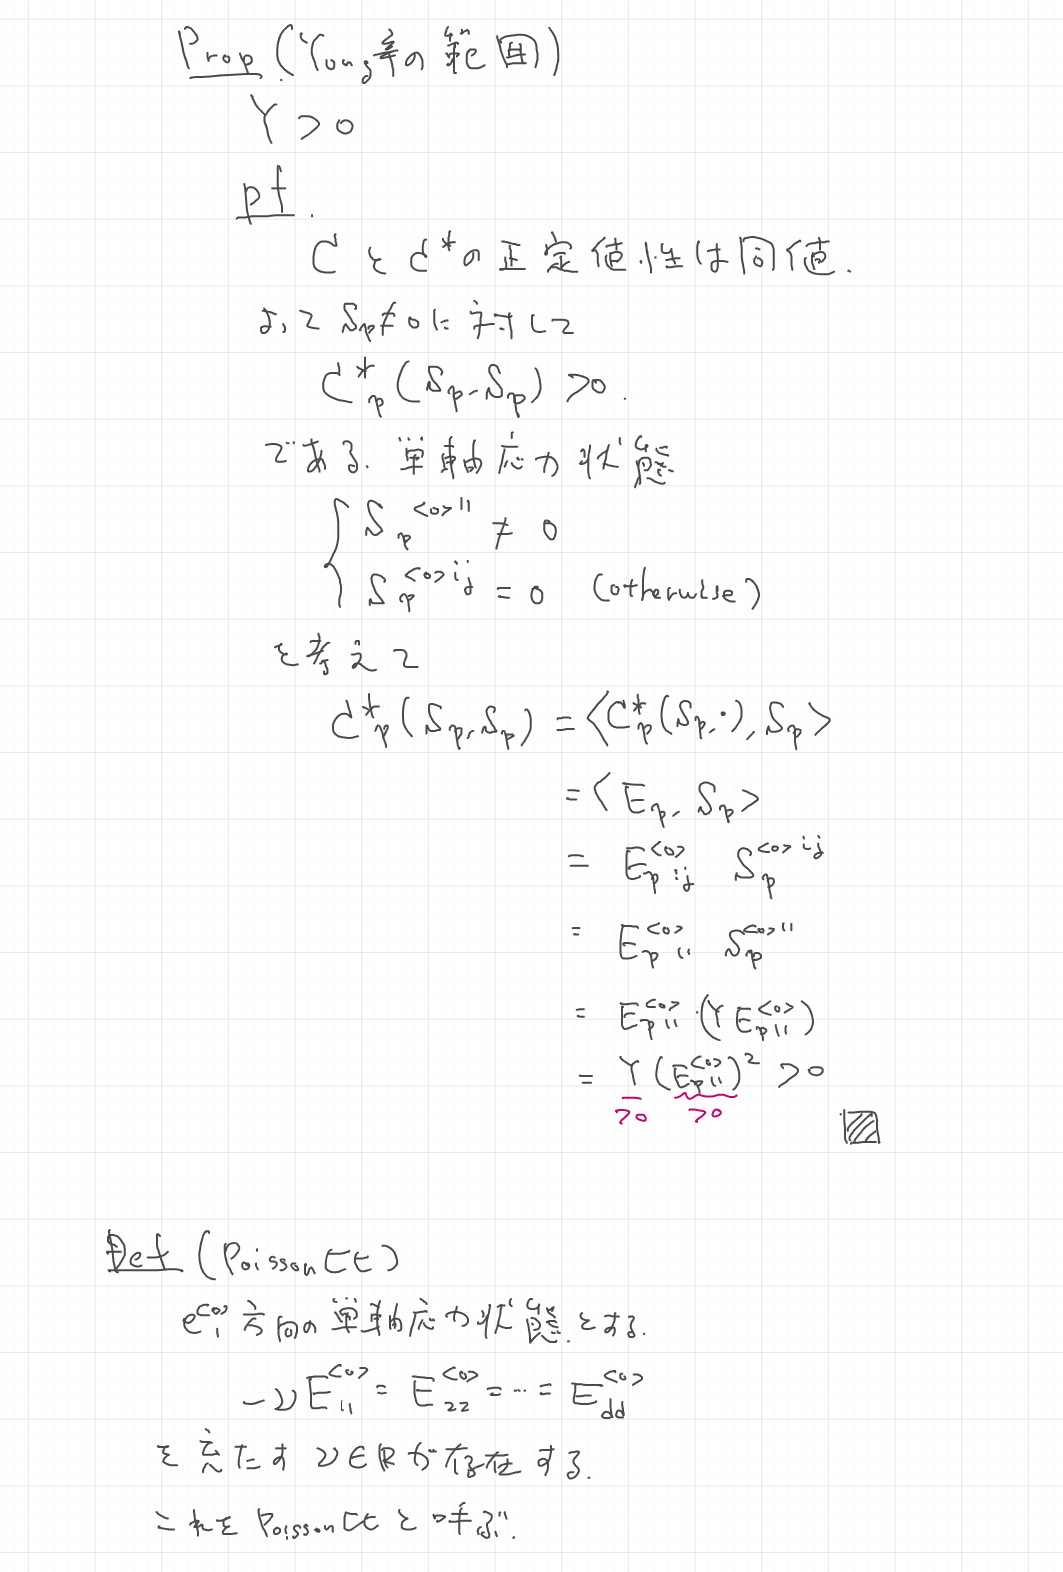 Prop (Young率の範囲)
Y > 0
pf.
C と C* の正定値性は同値.
よって Sp ≠ 0 に対して
C*p (Sp, Sp) > 0.
である. 単軸応力状態
{ Sp^<0>11 ≠ 0
Sp^<0>ij = 0 (otherwise)
を考えて
C*p (Sp, Sp) = <C*p (Sp, ·), Sp>
= <Ep, Sp>
= Ep^<0>ij Sp^<0>ij
= Ep^<0>11 Sp^<0>11
= Ep^<0>11 · (Y Ep^<0>11)
= Y (Ep^<0>11)^2 > 0
>0 >0
Def (Poisson比)
e^<0>1 方向の単軸応力状態とする.
-ν E^<0>11 = E^<0>22 = … = E^<0>dd
を充たす ν ∈ ℝ が存在する.
これを Poisson比 と呼ぶ.